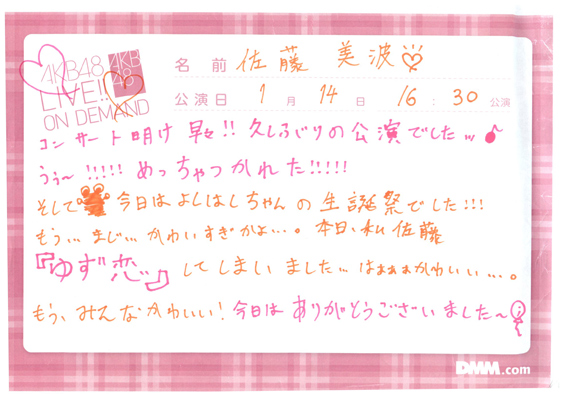 AKB48
LIVE!!
ON DEMAND
AKB
48
名前 佐藤 美波
公演日 1月14日 16:30公演
コンサート明け早々!! 久しぶりの公演でしたッ♪
うぅ〜!!!!! めっちゃつかれた!!!!!
そして今日はよしはしちゃんの生誕祭でした!!!
もう…まじ…かわいすぎかよ…。本日、私佐藤
『ゆず恋』してしまいました…はぁぁぁかわいい…。
もう、みんなかわいい!今日はありがとうございました〜
DMM.com